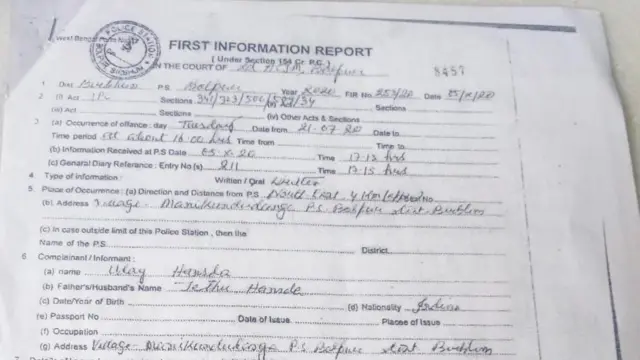 West Beng
POLICE STATION
FIRST INFORMATION REPORT
[ Under Section 154 Cr. P.C. ]
IN THE COURT OF Ld A.C.J.M, Bolpur
8457
1. Dist Birbhum P.S. Bolpur Year 2020 FIR No. Date
2. (i) Act IPC Sections 341/323/506/ /34 Sections
(iii) Act Sections (iv) Other Acts & Sections
3. (a) Occurrence of offence: day Tuesday Date from 21-07-20 Date to
Time period At about 16.00 hrs Time from Time to
(b) Information Received at P.S Date 05-X-20 Time 17-15 hrs
(c) General Diary Reference : Entry No(s) 211 Time 17-15 hrs
4. Type of information : Written / Oral Written
5. Place of Occurrence : (a) Direction and Distance from P.S. North East, 4 Km No.
(b) Address Village- P.S. Bolpur dist- Birbhum
(c) In case outside limit of this Police Station, then the
Name of the P.S District
6. Complainent / Informant :
(a) name Hansda
(b) Father's/Husband's Name Hansda
(c) Date/Year of Birth (d) Nationality Indian
(e) Passport No Date of Issue Place of Issue
(f) Occupation
(g) Address Village- P.S Bolpur dist Birbhum